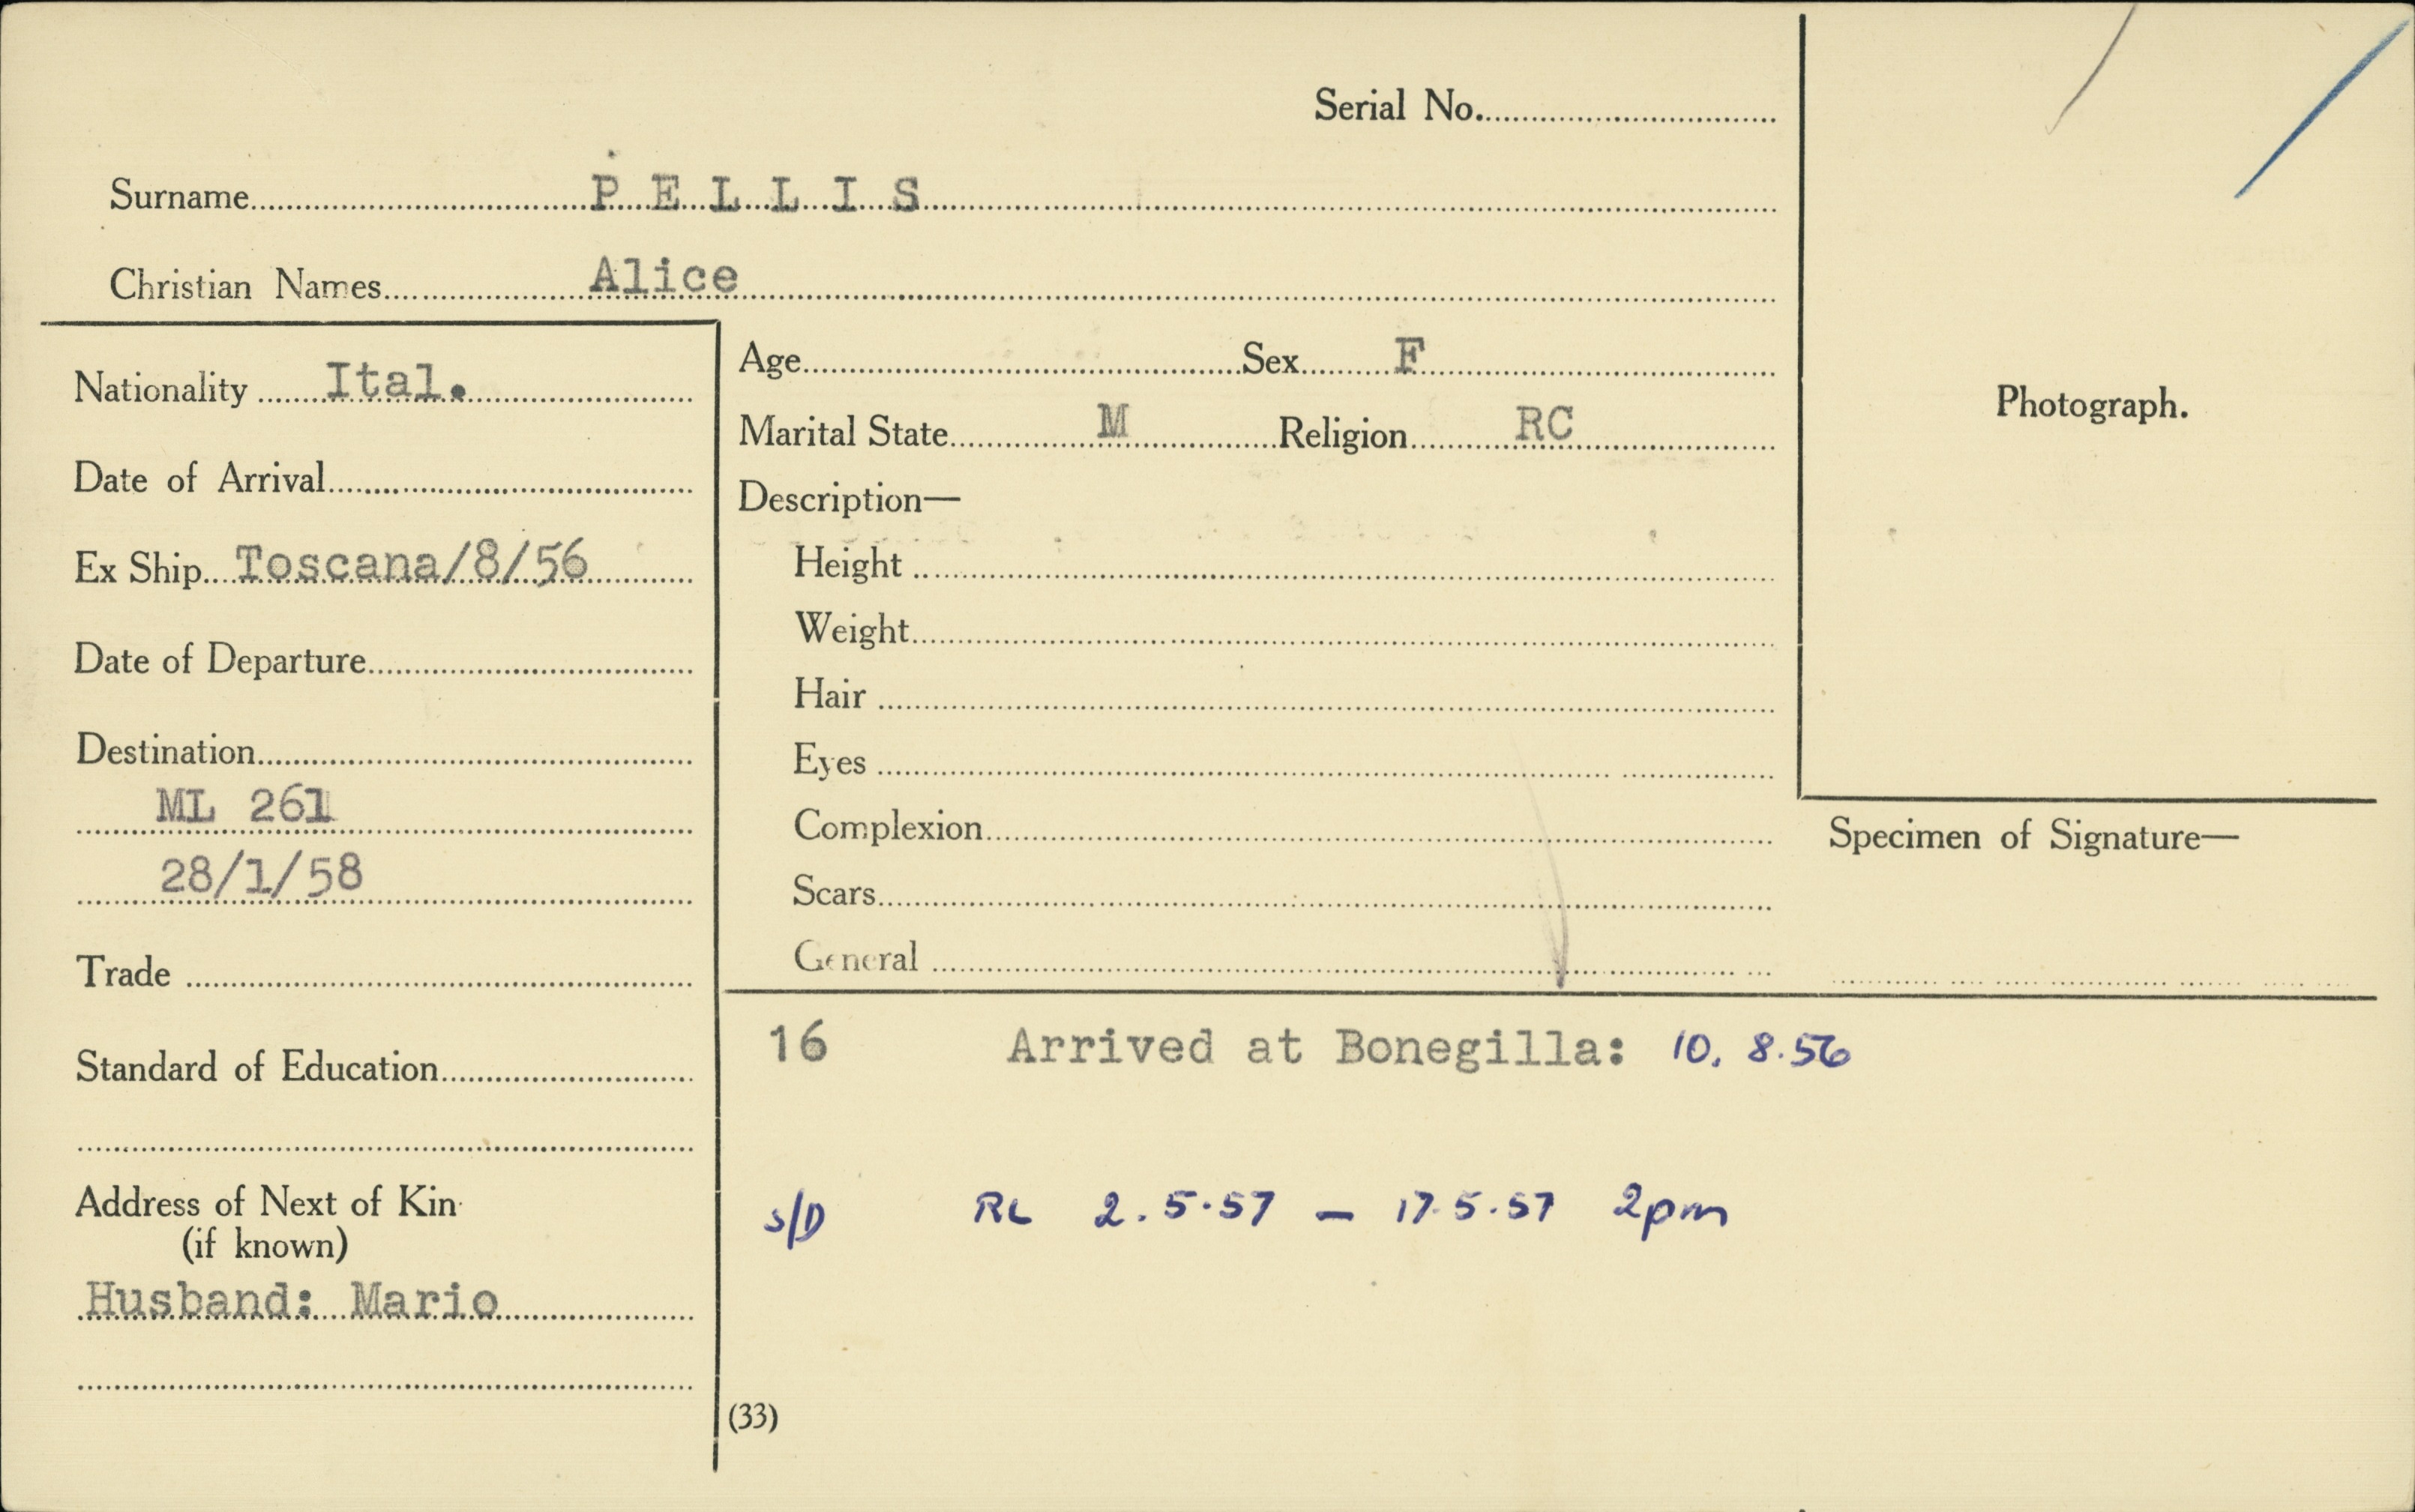 Serial No.
Surname P E L L I S
Christian Names Alice
Nationality Ital.
Date of Arrival
Ex Ship Toscana/8/56
Date of Departure
Destination
ML 261
28/1/58
Trade
Standard of Education
Address of Next of Kin
(if known)
Husband: Mario
Age Sex F
Marital State M Religion RC
Description—
Height
Weight
Hair
Eyes
Complexion
Scars
General
Photograph.
Specimen of Signature—
16 Arrived at Bonegilla: 10. 8.56
S/D RL 2.5.57 — 17.5.57 2pm
(33)